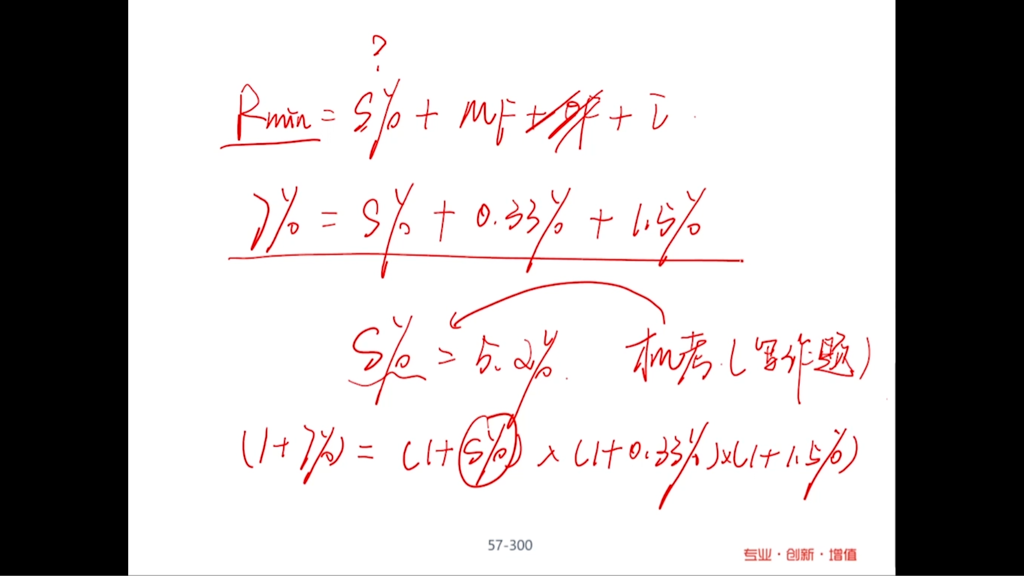 ?
Rmin = S% + MF + i
7% = S% + 0.33% + 1.5%
S% = 5.2% 机考(写作题)
(1+7%) = (1+S%) × (1+0.33%)×(1+1.5%)
57-300
专业·创新·增值